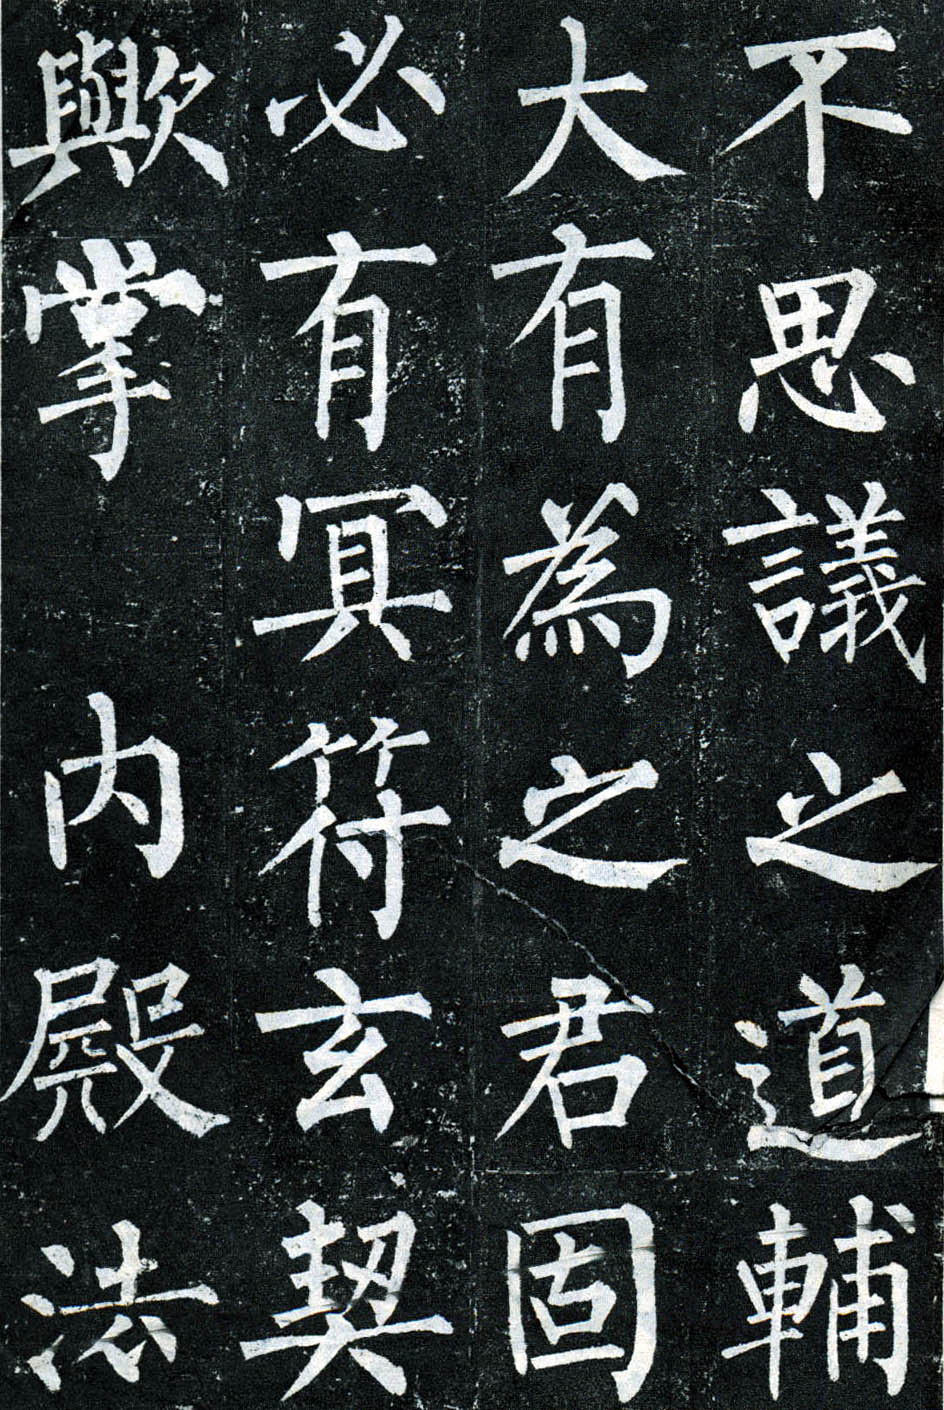 不思議之道輔
大有為之君固
必有冥符玄契
歟掌 內殿法